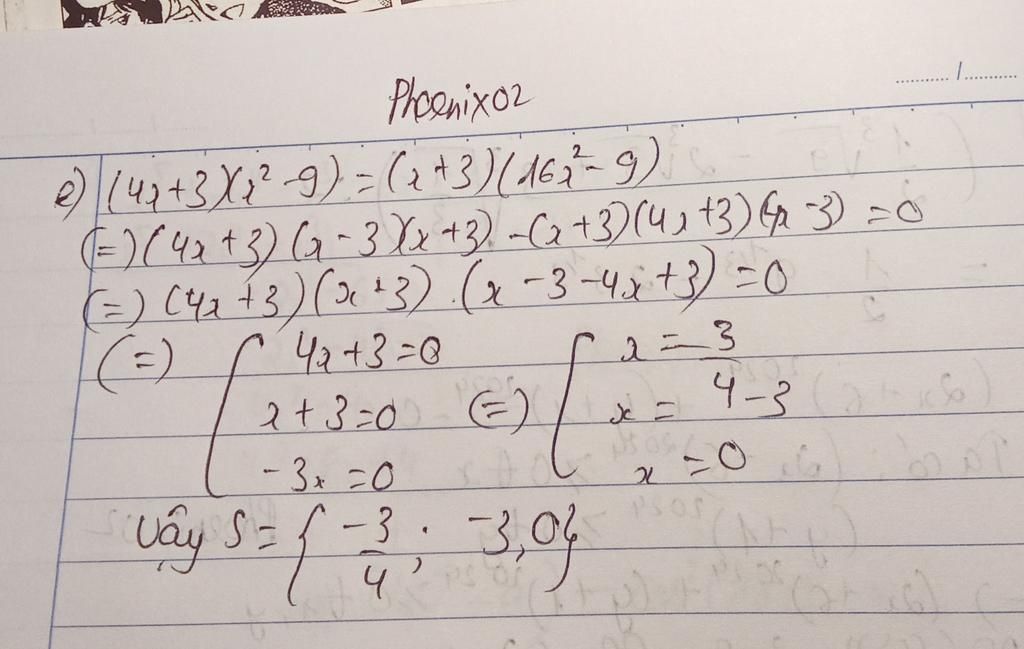 Phoenix02
........../..........
e) (4x+3)(x² - 9) = (x+3)(16x² - 9)
(=) (4x+3)(x-3)(x+3) - (x+3)(4x+3)(4x-3) = 0
(=) (4x+3)(x+3).(x-3-4x+3) = 0
(=) [ 4x+3=0 (=) [ x = -3/4
x+3=0 x = -3
-3x=0 x = 0
Vậy S = { -3/4 ; -3, 0}